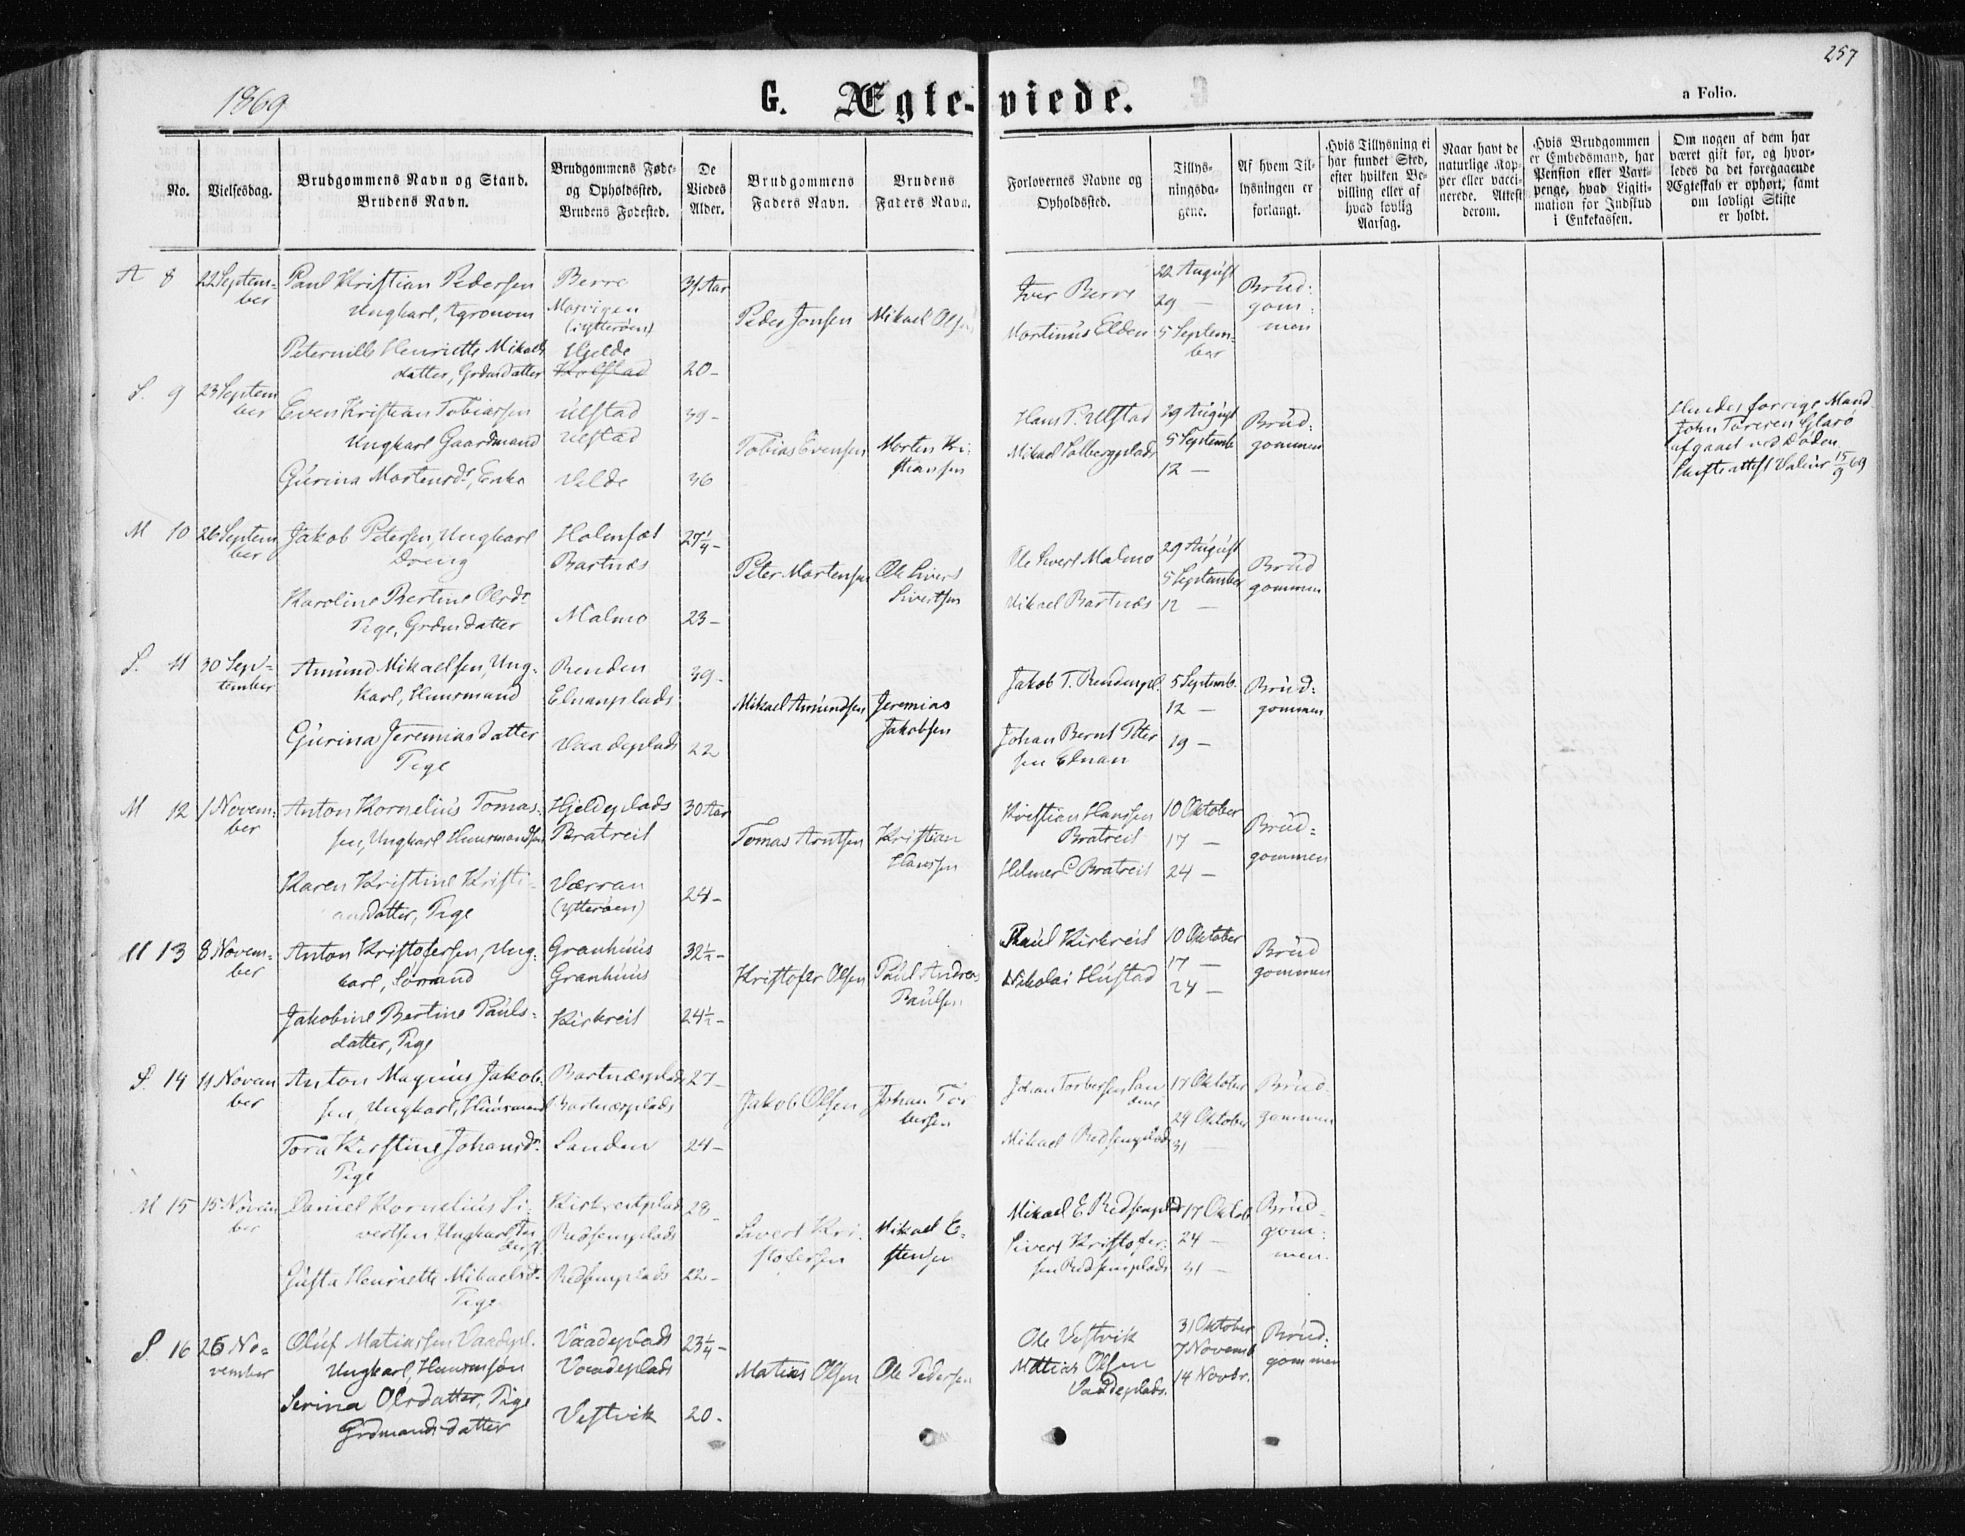 257
1869
G. Ægte-viede.
a Folio.
No.
Vielsesdag.
Brudgommens Navn og Stand.
Brudens Navn.
Brudgommens Føde-
og Opholdssted.
Brudens Fødested.
De
Viedes
Alder.
Brudgommens
Faders Navn.
Brudens
Faders Navn.
Forlovernes Navne og
Opholdssted.
Tillys-
ningsda-
gene.
Af hvem Til-
lysningen er
forlangt.
Hvis Tillysning ei
har fundet Sted,
efter hvilken Be-
villing eller af
hvad lovlig
Aarsag.
Naar havt de
naturlige Kop-
per eller vacci-
nerede. Attest
derom.
Hvis Brudgommen
er Embedsmand, har
Pension eller Vart-
penge, hvad Legiti-
mation for Indskud
i Enkekassen.
Om nogen af dem har
været gift før, og hvor-
ledes da det foregaaende
Ægteskab er ophørt, samt
om lovligt Skifte
er holdt.
A 8 22 Septem-
ber
Paul Kristian Pedersen
Ungkarl, Agronom
Peternille Henriette Mikaels
datter, Grdmdatter
Berre
Mosvigen
(Ytterøen)
Hjelde
Kolstad
31 Aar
20-
Peder Jonsen
Mikael Olsen
Iver Berre
Martinus Elden
22 August
29 -
5 Septem-
ber
Brud-
gom-
men
S. 9 23 Septem
ber
Even Kristian Tobiassen
Ungkarl Gaardmand
Gurina Mortensdr, Enke
Ulstad
Ulstad
Velde
39-
36
Tobias Evensen
Morten Kri-
stiansen
Hans T. Ulstad
Mikael Solbergplads
29 August
5 Septemb
12 -
Brud-
gommen
Hendes forrige Mand
John
afgaaet ved Døden
Skifteattest 15/9 69
M 10 26 Septem
ber
Jakob Petersen, Ungkarl
Dreng
Karoline Bertine Olsdr
Pige, Grdmdatter
Holmset
Bartnes
Malmo
27 1/4-
23-
Peter Mortensen
Ole Sivert
Sivertsen
Ole Sivert Malmo
Mikael Bartnes
29 August
5 September
12 -
Brud
gommen
S. 11 30 Sep-
tember
Amund Mikaelsen, Ung-
karl, Husmand
Gurina Jeremiasdatter
Pige
Renden
Elnanplads
Vaadeplads
39-
22
Mikael Amundsen
Jeremias
Jakobsen
Jakob T. Rendenpl.
Johan Bernt Peter
sen Elnan
5 Septemb.
12 -
19 -
Brud-
gommen
M 12 1 Novem-
ber
Anton Kornelius Tomas-
sen, Ungkarl Husmandsøn
Karen Kristine Kristi-
ansdatter, Pige
Hjeldeplads
Bratreit
Værran
(Ytterøen)
30 Aar
24-
Tomas Arntsen
Kristian
Hansen
Kristian Hansen
Bratreit
Helmer C Bratreit
10 Oktober
17 -
24 -
Brud-
gommen
M 13 8 Novem-
ber
Anton Kristofersen, Ung-
karl, Sømand
Jakobine Bertine Pauls-
datter, Pige
Granhuus
Granhuus
Kirkreit
32 1/2-
24 1/2-
Kristofer Olsen
Paul Andreas
Paulsen
Paul Kirkreit
Nikolai Hustad
10 Oktober
17 -
24 -
Brud
gommen
S. 14 11 Novem
ber
Anton Magnus Jakob-
sen, Ungkarl, Husmand
Tora Kirstine Johansdr
Pige
Bartnesplads
Bartnesplads
Sanden
27-
24-
Jakob Olsen
Johan Tor
bersen
Johan Torbersen San
dene
Mikael Redsemplads
17 Oktober
29 Oktober
31 -
Brud-
gommen
M 15 15 Novem
ber
Daniel Kornelius Si-
vertsen, Ungkarl
Gusta Henriette Mikaelsdr
Pige
Kirkreitplads
Redsemplads
Redsemplads
28-
22-
Sivert Kri-
stofersen
Mikael E-
stensen
Mikael E Redsemplads
Sivert Kristofer-
sen Redsemplads
17 Oktob
24 -
31 -
Brud-
gom-
men.
S. 16 26 No-
vember
Oluf Matiassen Vaadepl.
Ungkarl, Husmsøn
Serina Olsdatter, Pige
Grdmandsdatter
Vaadeplads
Vaadeplads
Vestvik
23 1/4-
20-
Matias Olsen
Ole Pedersen
Ole Vestvik
Mattias Olsen
Vaadeplads.
31 Oktober
7 Novemb.
14 Novbr.
Brud-
gommen